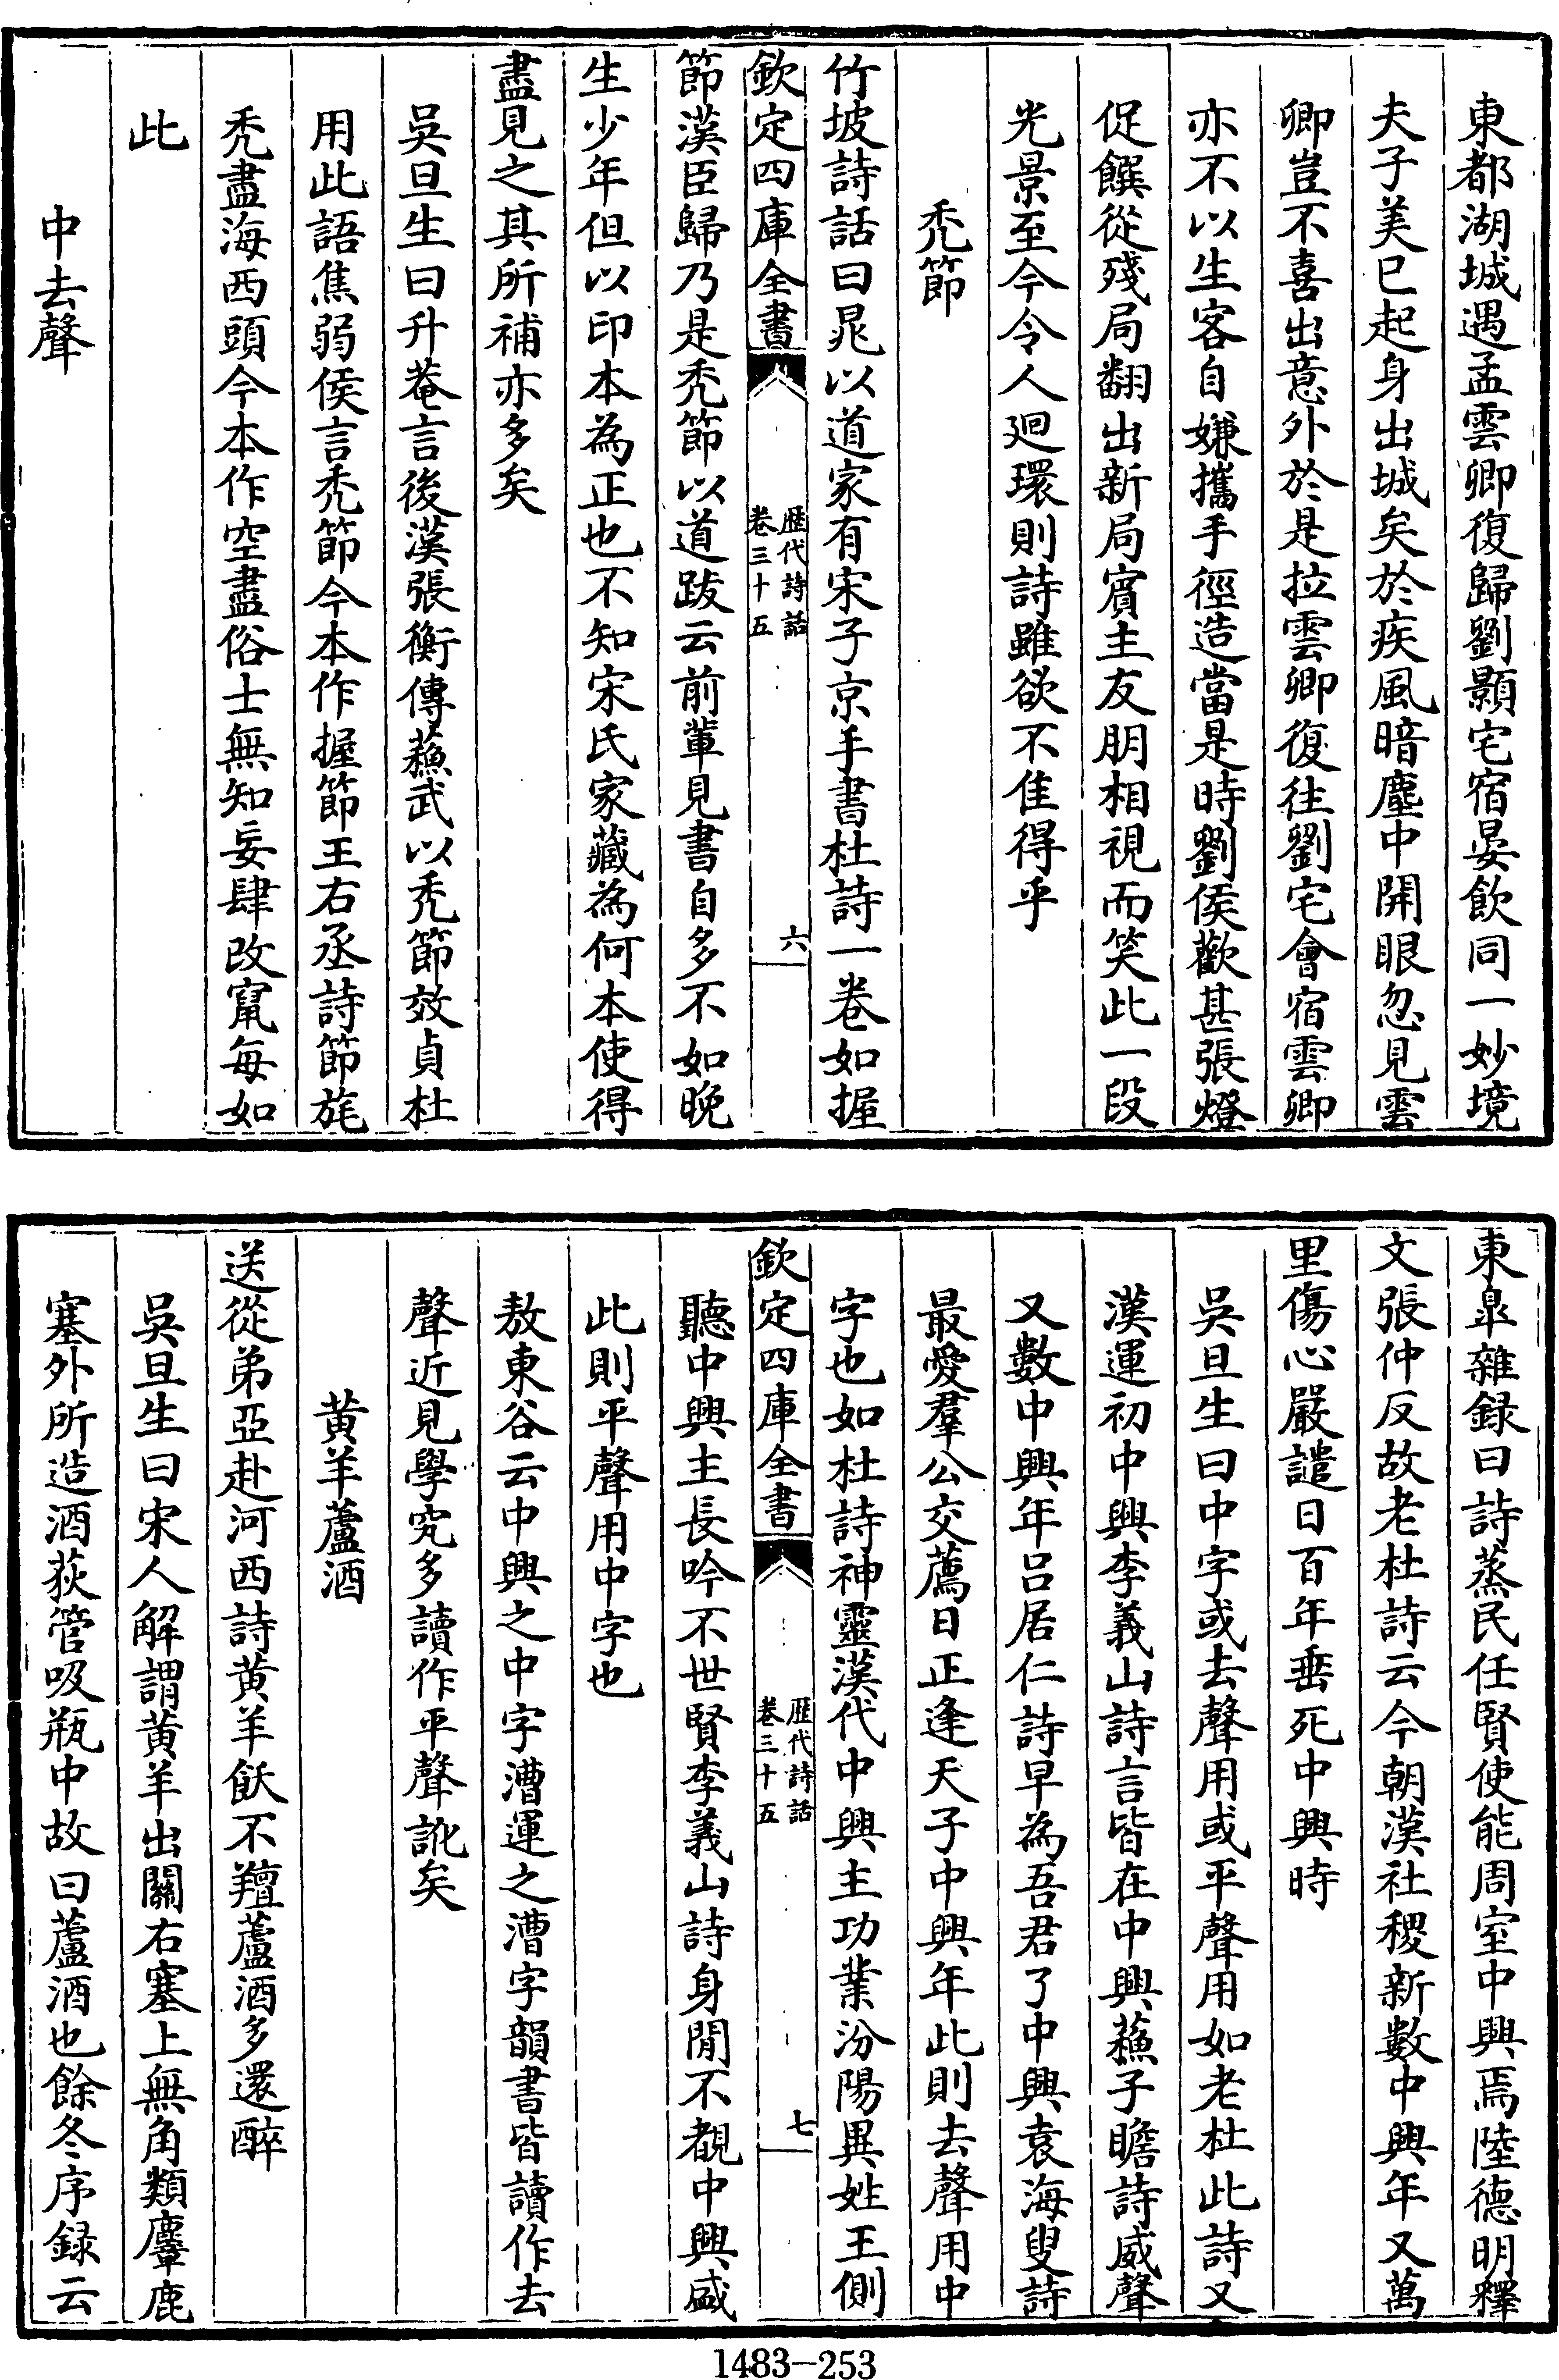 東都湖城遇孟雲卿復歸劉顥宅宿晏飲同一妙境
夫子美已起身出城矣於疾風暗塵中開眼忽見雲
卿豈不喜出意外於是拉雲卿復往劉宅會宿雲卿
亦不以生客自嫌攜手徑造當是時劉侯歡甚張燈
促饌從殘局翻出新局賓主友朋相視而笑此一段
光景至今令人廻環則詩雖欲不佳得乎
禿節
竹坡詩話曰晁以道家有宋子京手書杜詩一卷如握
欽定四庫全書
歷代詩話
卷三十五
六
節漢臣歸乃是禿節以道跋云前輩見書自多不如晚
生少年但以印本為正也不知宋氏家藏為何本使得
盡見之其所補亦多矣
吳旦生曰升菴言後漢張衡傳蘓武以禿節效貞杜
用此語焦弱侯言禿節今本作握節王右丞詩節旄
禿盡海西頭今本作空盡俗士無知妄肆改竄每如
此
中去聲
東臯雜録曰詩蒸民任賢使能周室中興焉陸德明釋
文張仲反故老杜詩云今朝漢社稷新數中興年又萬
里傷心嚴譴日百年垂死中興時
吳旦生曰中字或去聲用或平聲用如老杜此詩又
漢運初中興李義山詩言皆在中興蘓子瞻詩威聲
又數中興年吕居仁詩早為吾君了中興袁海叟詩
最愛羣公交薦日正逢天子中興年此則去聲用中
字也如杜詩神靈漢代中興主功業汾陽異姓王側
欽定四庫全書
歷代詩話
卷三十五
七
聽中興主長吟不世賢李義山詩身閒不覩中興盛
此則平聲用中字也
敖東谷云中興之中字漕運之漕字韻書皆讀作去
聲近見學究多讀作平聲訛矣
黄羊蘆酒
送從弟亞赴河西詩黄羊飫不羶蘆酒多還醉
吳旦生曰宋人解謂黄羊出關右塞上無角類麞鹿
塞外所造酒荻管吸瓶中故曰蘆酒也餘冬序録云
1483-253